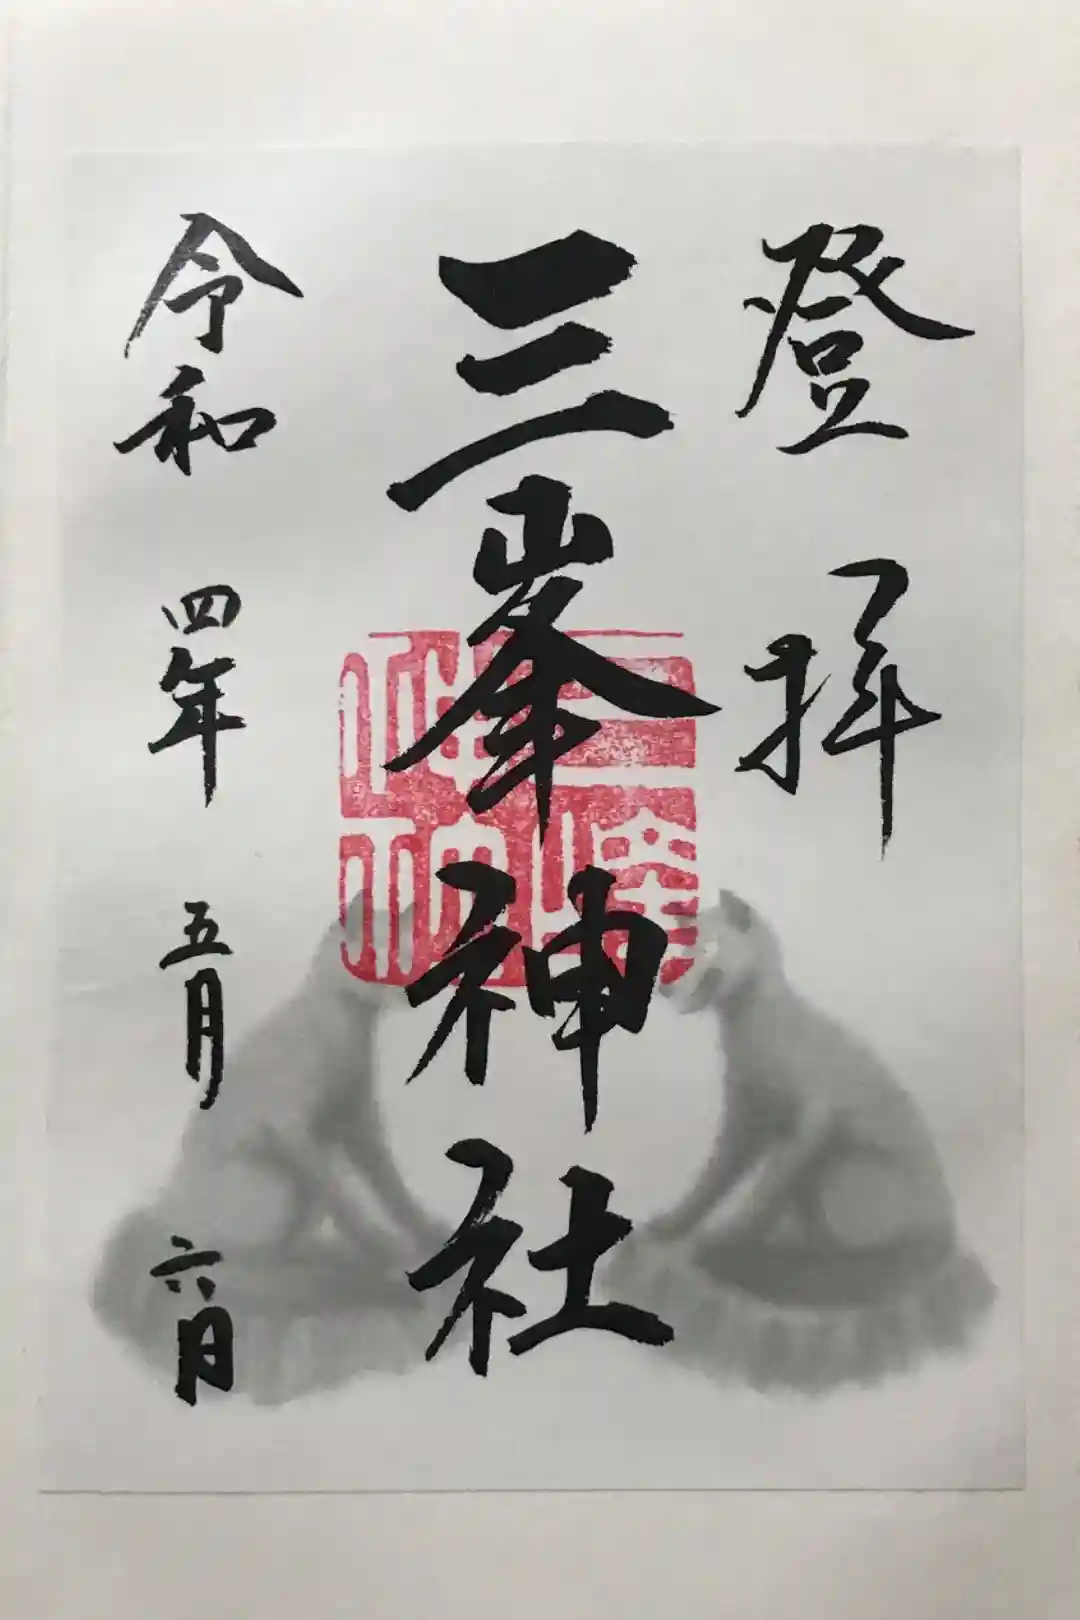 登拝
三峯神社
令和四年五月六日